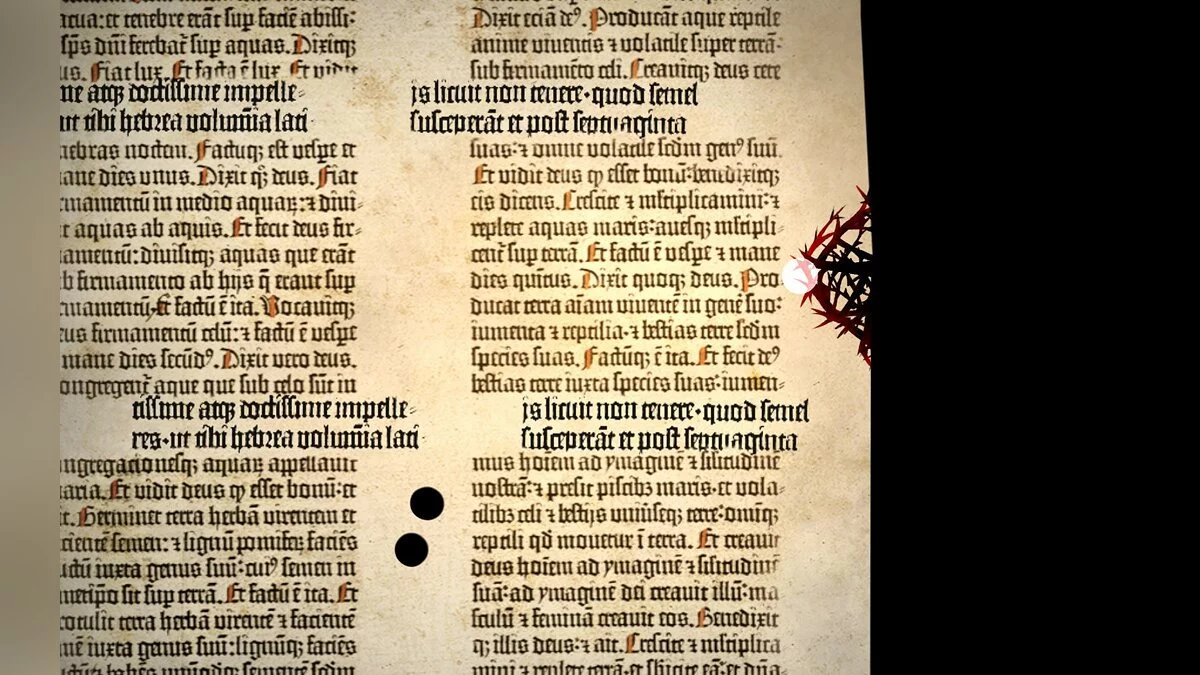 tcua: et tenebre erāt sup faciē abissi:
sp̄s dn̄i ferebat͛ sup aquas. Dixitqꝫ
us. Fiat lux. Et facta ē lux. Et vidit
me atqꝫ doctissime impelle-
ut tibi hebrea volumīa lati
nebras noctem. Factuqꝫ est vespe et
mane dies vnus. Dixit qꝫ deus. Fiat
rmamentū in medio aquaꝝ: ⁊ divi-
t aquas ab aquis. Et fecit deus fir-
mamentū: divisitqꝫ aquas que erāt
b firmamento ab hijs q̄ erant sup
rmamentū, et factū ē ita. Vocavitqꝫ
eus firmamentū celū: ⁊ factū ē vespe
mane dies secūd⁹. Dixit vero deus.
ongregent͛ aque que sub celo sūt in
tissime atqꝫ doctissime impelle-
res · ut tibi hebrea volumīa lati
ongregacionesqꝫ aquaꝝ appellavit
maria. Et vidit deus ꝙ esset bonū: et
it. Germinet terra herbā virentem et
cientē semen: ⁊ lignū pomiferꝫ faciēs
uctū iuxta genus suū: cui⁹ semen in
metip̄o sit sup terrā. Et factū ē ita. Et
rotulit terra herbā virentē ⁊ facientē
mē iuxta genus suū: lignūqꝫ faciēs
Dixit eciā de⁹. Producāt aque reptile
anime viventis ⁊ volatile super terrā:
sub firmamēto celi. Creavitqꝫ deus cete
is licuit non tenere · quod semel
susceperāt et post septuaginta
suas: ⁊ omne volatile scd̄m gen⁹ suū.
Et vidit deus ꝙ esset bonū: benedixitqꝫ
eis dicens. Crescite ⁊ ml̄tiplicamini: ⁊
replete aquas maris: avesqꝫ ml̄tipli-
cent͛ sup terrā. Et factū ē vespe ⁊ mane
dies quītus. Dixit quoqꝫ deus. Pro
ducat terra aīam viventē in gene͛ suo:
iumenta ⁊ reptilia · ⁊ bestias terre scd̄m
species suas. Factūqꝫ ē ita. Et fecit de⁹
bestias terre iuxta species suas: iumen-
is licuit non tenere · quod semel
susceperāt et post septuaginta
mus hoīem ad ymaginē ⁊ similitudinē
nostrā: ⁊ presit piscibꝫ maris · et vola-
tilibꝫ celi ⁊ bestijs universeqꝫ terre: omniqꝫ
reptili qd̄ movetur ī terra. Et creavit
deus hoīem ad ymaginē ⁊ similitudinē
suā: ad ymaginē dei creavit illū: ma
sculū ⁊ feminā creavit eos. Benedixit
qꝫ illis deus: ⁊ ait. Crescite ⁊ ml̄tiplica
mini ⁊ replete terrā · et subicite eā: et dn̄a-